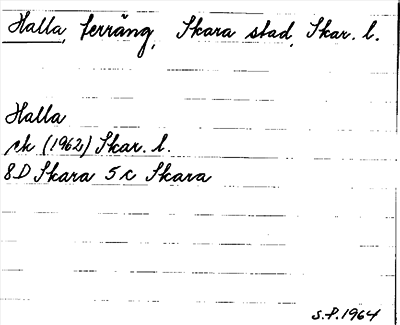 Halla, terräng, Skara stad, Skar. l.
Halla
ek (1962) Skar. l.
8D Skara 5c Skara
S.P. 1964